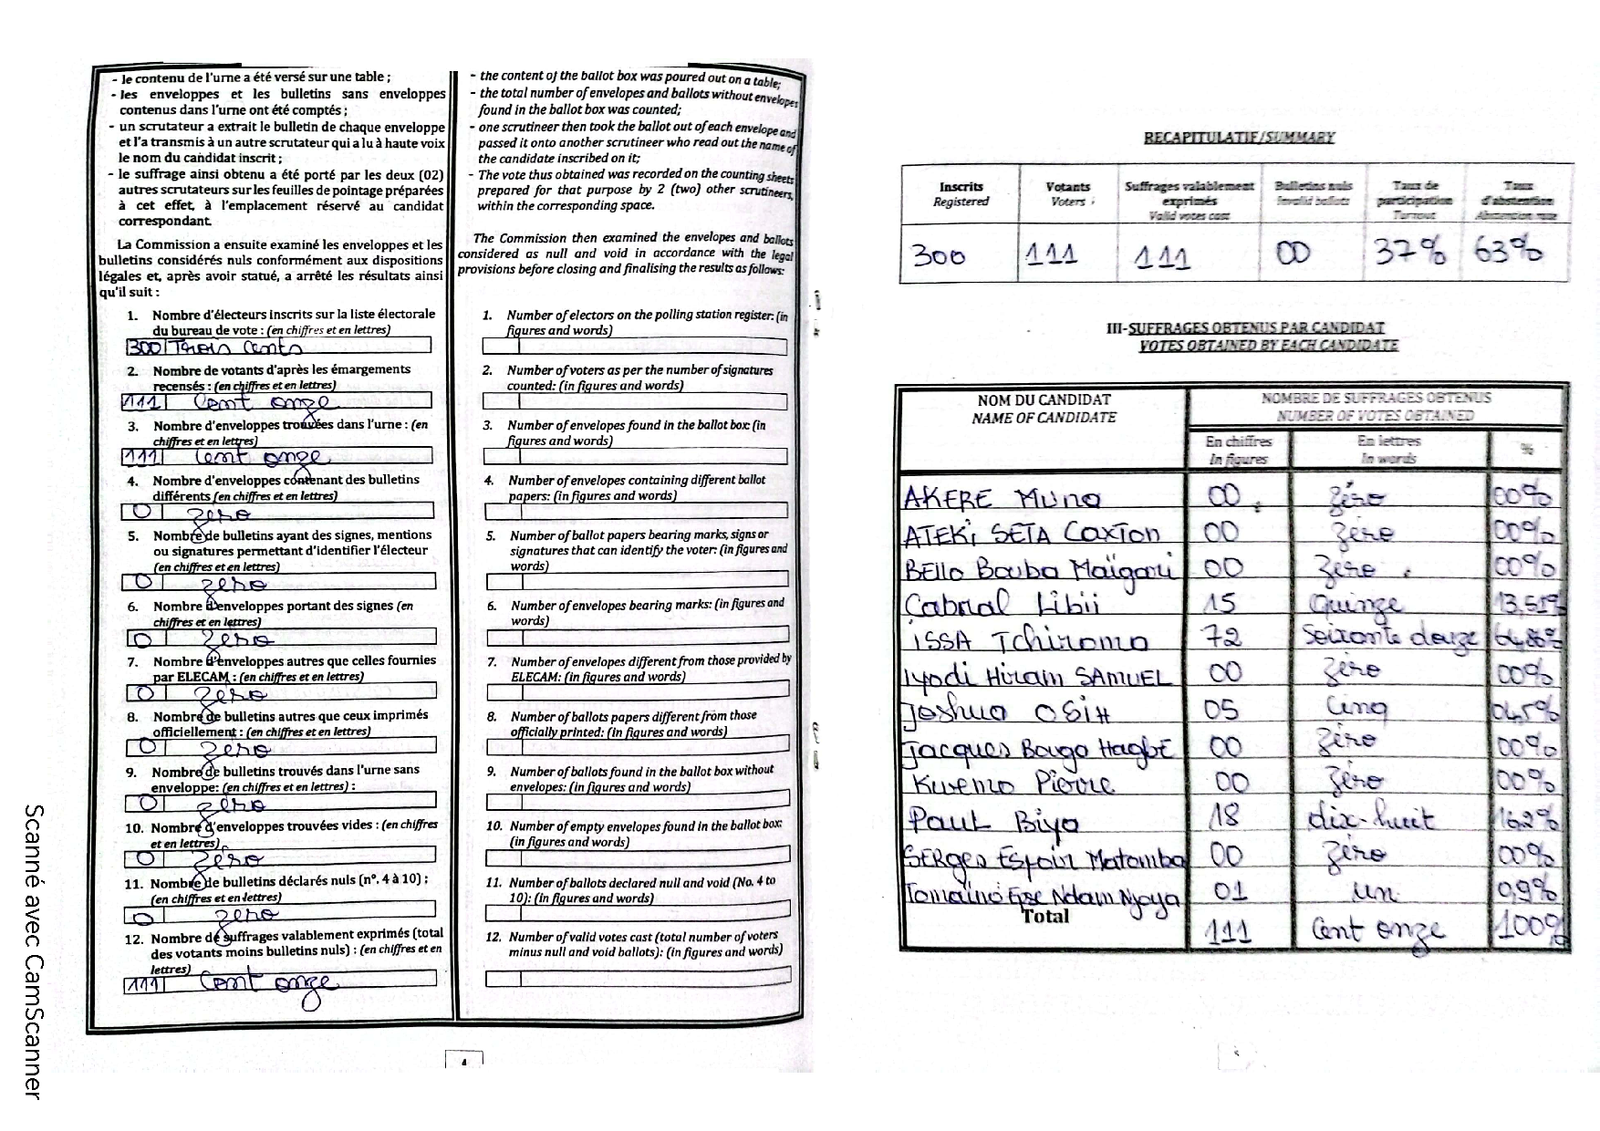 - le contenu de l'urne a été versé sur une table ;
- les enveloppes et les bulletins sans enveloppes
contenus dans l'urne ont été comptés ;
- un scrutateur a extrait le bulletin de chaque enveloppe
et l'a transmis à un autre scrutateur qui a lu à haute voix
le nom du candidat inscrit ;
- le suffrage ainsi obtenu a été porté par les deux (02)
autres scrutateurs sur les feuilles de pointage préparées
à cet effet, à l'emplacement réservé au candidat
correspondant.
La Commission a ensuite examiné les enveloppes et les
bulletins considérés nuls conformément aux dispositions
légales et, après avoir statué, a arrêté les résultats ainsi
qu'il suit :
1. Nombre d'électeurs inscrits sur la liste électorale
du bureau de vote : (en chiffres et en lettres)
300 Trois Cents
2. Nombre de votants d'après les émargements
recensés : (en chiffres et en lettres)
111 Cent onze
3. Nombre d'enveloppes trouvées dans l'urne : (en
chiffres et en lettres)
111 Cent onze
4. Nombre d'enveloppes contenant des bulletins
différents (en chiffres et en lettres)
0 zero
5. Nombre de bulletins ayant des signes, mentions
ou signatures permettant d'identifier l'électeur
(en chiffres et en lettres)
0 zero
6. Nombre d'enveloppes portant des signes (en
chiffres et en lettres)
0 zero
7. Nombre d'enveloppes autres que celles fournies
par ELECAM : (en chiffres et en lettres)
0 zero
8. Nombre de bulletins autres que ceux imprimés
officiellement : (en chiffres et en lettres)
0 zero
9. Nombre de bulletins trouvés dans l'urne sans
enveloppe: (en chiffres et en lettres) :
0 zero
10. Nombre d'enveloppes trouvées vides : (en chiffres
et en lettres)
0 zero
11. Nombre de bulletins déclarés nuls (n°. 4 à 10) ;
(en chiffres et en lettres)
0 zero
12. Nombre de suffrages valablement exprimés (total
des votants moins bulletins nuls) : (en chiffres et en
lettres)
111 Cent onze
- the content of the ballot box was poured out on a table;
- the total number of envelopes and ballots without envelopes
found in the ballot box was counted;
- one scrutineer then took the ballot out of each envelope and
passed it onto another scrutineer who read out the name of
the candidate inscribed on it;
- The vote thus obtained was recorded on the counting sheets
prepared for that purpose by 2 (two) other scrutineers,
within the corresponding space.
The Commission then examined the envelopes and ballots
considered as null and void in accordance with the legal
provisions before closing and finalising the results as follows:
1. Number of electors on the polling station register: (in
figures and words)
2. Number of voters as per the number of signatures
counted: (in figures and words)
3. Number of envelopes found in the ballot box: (in
figures and words)
4. Number of envelopes containing different ballot
papers: (in figures and words)
5. Number of ballot papers bearing marks, signs or
signatures that can identify the voter: (in figures and
words)
6. Number of envelopes bearing marks: (in figures and
words)
7. Number of envelopes different from those provided by
ELECAM: (in figures and words)
8. Number of ballots papers different from those
officially printed: (in figures and words)
9. Number of ballots found in the ballot box without
envelopes: (in figures and words)
10. Number of empty envelopes found in the ballot box:
(in figures and words)
11. Number of ballots declared null and void (No. 4 to
10): (in figures and words)
12. Number of valid votes cast (total number of voters
minus null and void ballots): (in figures and words)
4
RECAPITULATIF/SUMMARY
Inscrits Votants Suffrages valablement exprimés Bulletins nuls Taux de participation Taux d'abstention
Registered Voters : Valid votes cast Invalid ballots Turnout Abstention rate
300 111 111 00 37% 63%
III-SUFFRAGES OBTENUS PAR CANDIDAT
VOTES OBTAINED BY EACH CANDIDATE
NOM DU CANDIDAT NOMBRE DE SUFFRAGES OBTENUS
NAME OF CANDIDATE NUMBER OF VOTES OBTAINED
En chiffres En lettres %
In figures In words
AKERE Muna 00 zéro 00%
ATEKI SETA Caxton 00 zéro 00%
BEllo Bouba Maïgari 00 zéro 00%
Cabral Libii 15 quinze 13,51%
ISSA Tchiroma 72 Soixante douze 64,86%
Iyodi Hiram SAMUEL 00 zéro 00%
Joshua OSIH 05 Cinq 04,5%
Jacques Bougo HagbE 00 zéro 00%
Kwemo Pierre 00 zéro 00%
Paul Biya 18 dix-huit 16,2%
SERGES ESpoir Matomba 00 zéro 00%
Tomaïno Ndam Njoya 01 un 0,9%
Total 111 Cent onze 100%
Scanné avec CamScanner